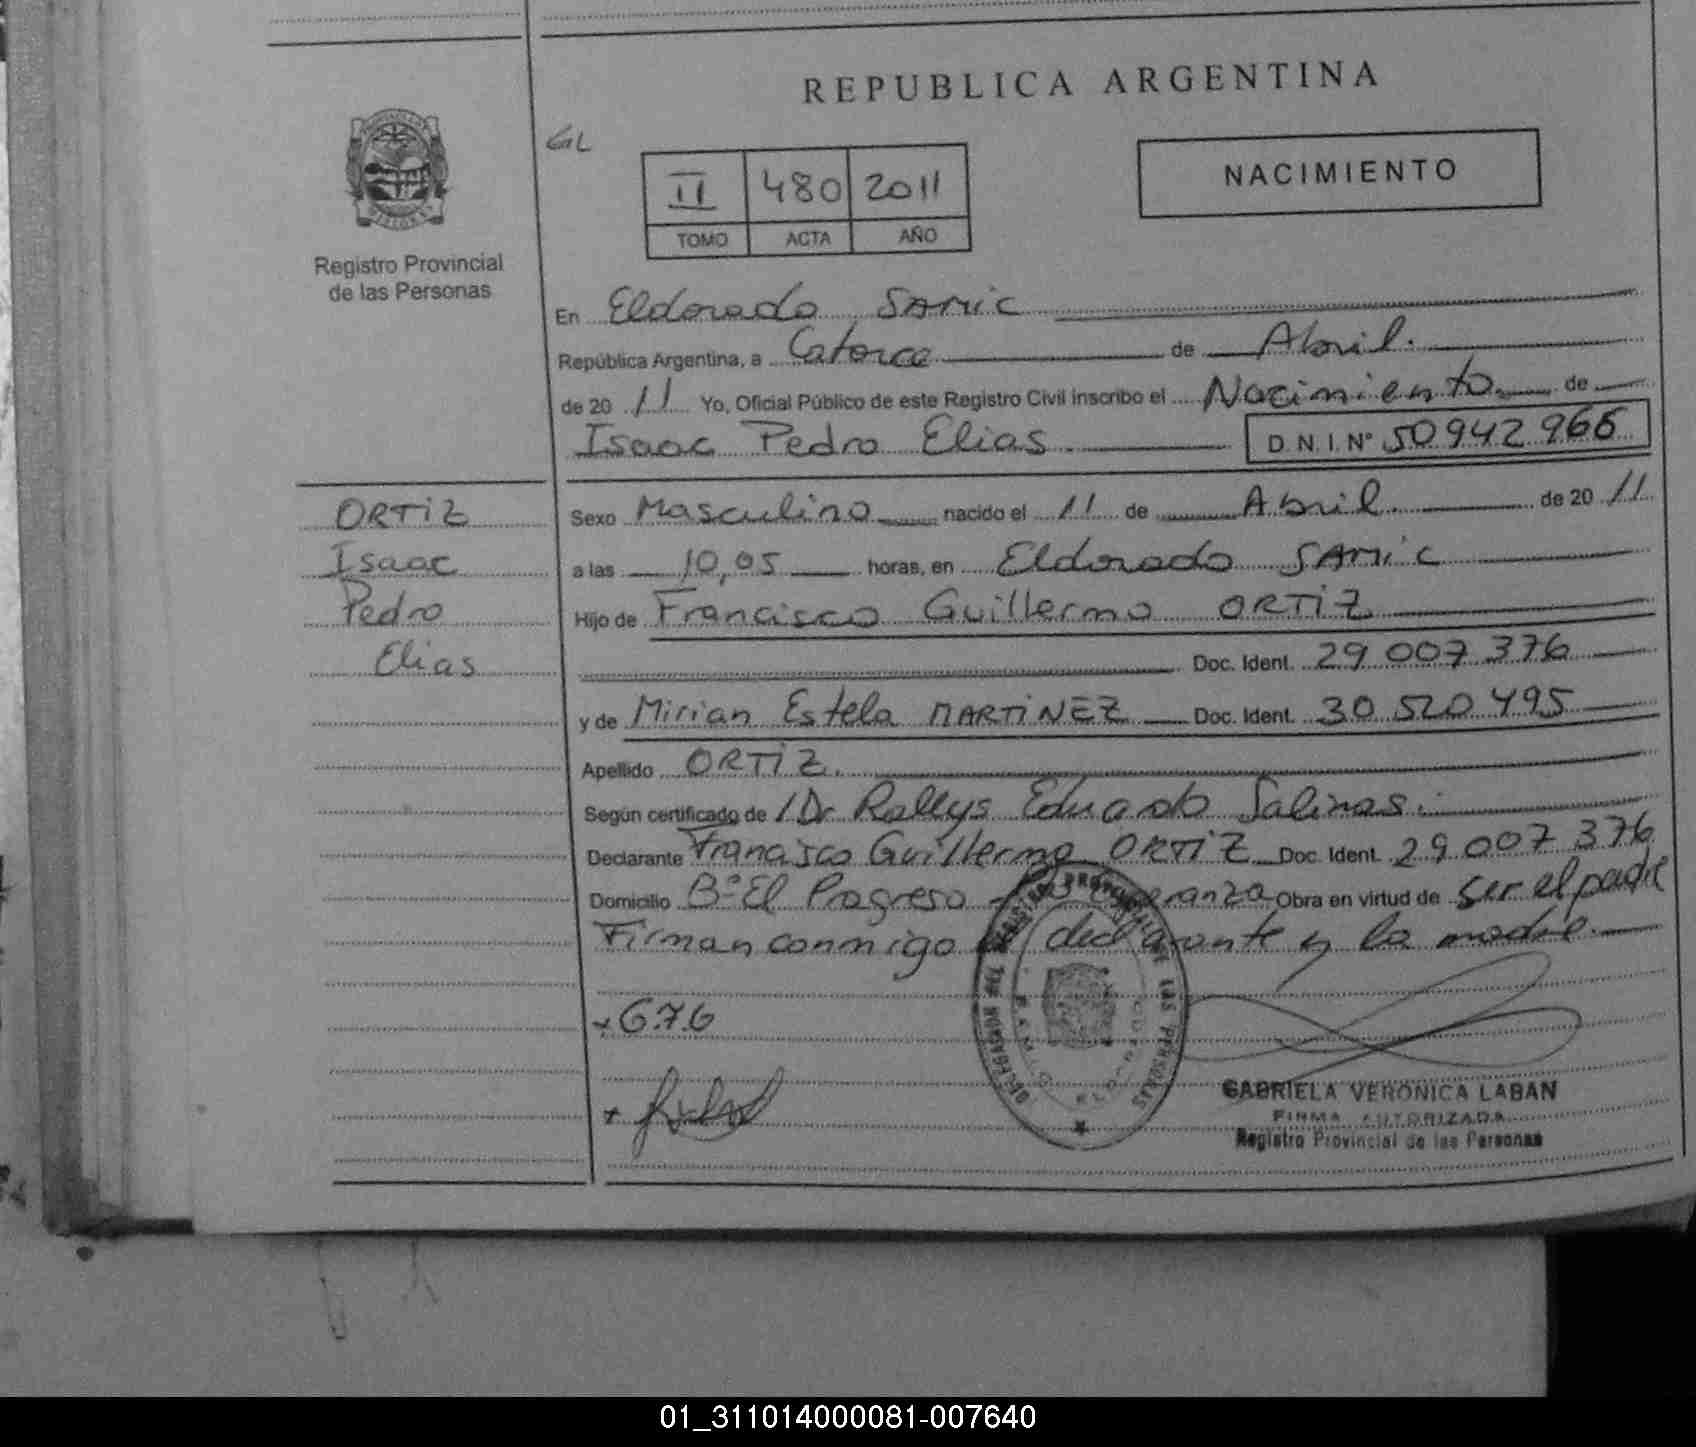 REPUBLICA ARGENTINA
GL
NACIMIENTO
II 480 2011
TOMO ACTA AÑO
Registro Provincial
de las Personas
En Eldorado SAMIC
República Argentina, a Catorce de Abril.
de 20 11 Yo, Oficial Público de este Registro Civil inscribo el Nacimiento de
Isaac Pedro Elias. D.N.I. Nº 50942966
ORTIZ
Isaac
Pedro
Elias
Sexo Masculino nacido el 11 de Abril. de 20 11
a las 10,05 horas, en Eldorado SAMIC
Hijo de Francisco Guillermo ORTIZ
Doc. Ident. 29 007 376
y de Mirian Estela MARTINEZ Doc. Ident. 30 520 495
Apellido ORTIZ.
Según certificado de Dr Rallys Eduardo Salinas.
Declarante Francisco Guillermo ORTIZ Doc. Ident. 29 007 376
Domicilio Bº El Progreso Obra en virtud de ser el padre
Firman conmigo declarante y la madre.
GABRIELA VERONICA LABAN
FIRMA AUTORIZADA
Registro Provincial de las Personas
01_311014000081-007640